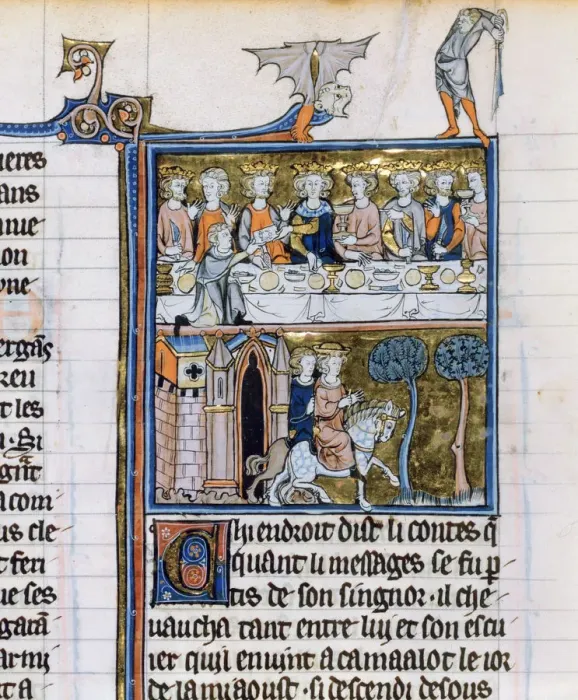 ieres
ans
on
reu
t les
acom
us cle
t feri
ue ses
garã
t a
Chi endroit dist li contes q̃
quant li messages se fu p
tis de son singnor · il che
uaucha tant entre luy et son escu
ier quil enuint a camaalot le ior
de la miaoust · si descendi desous